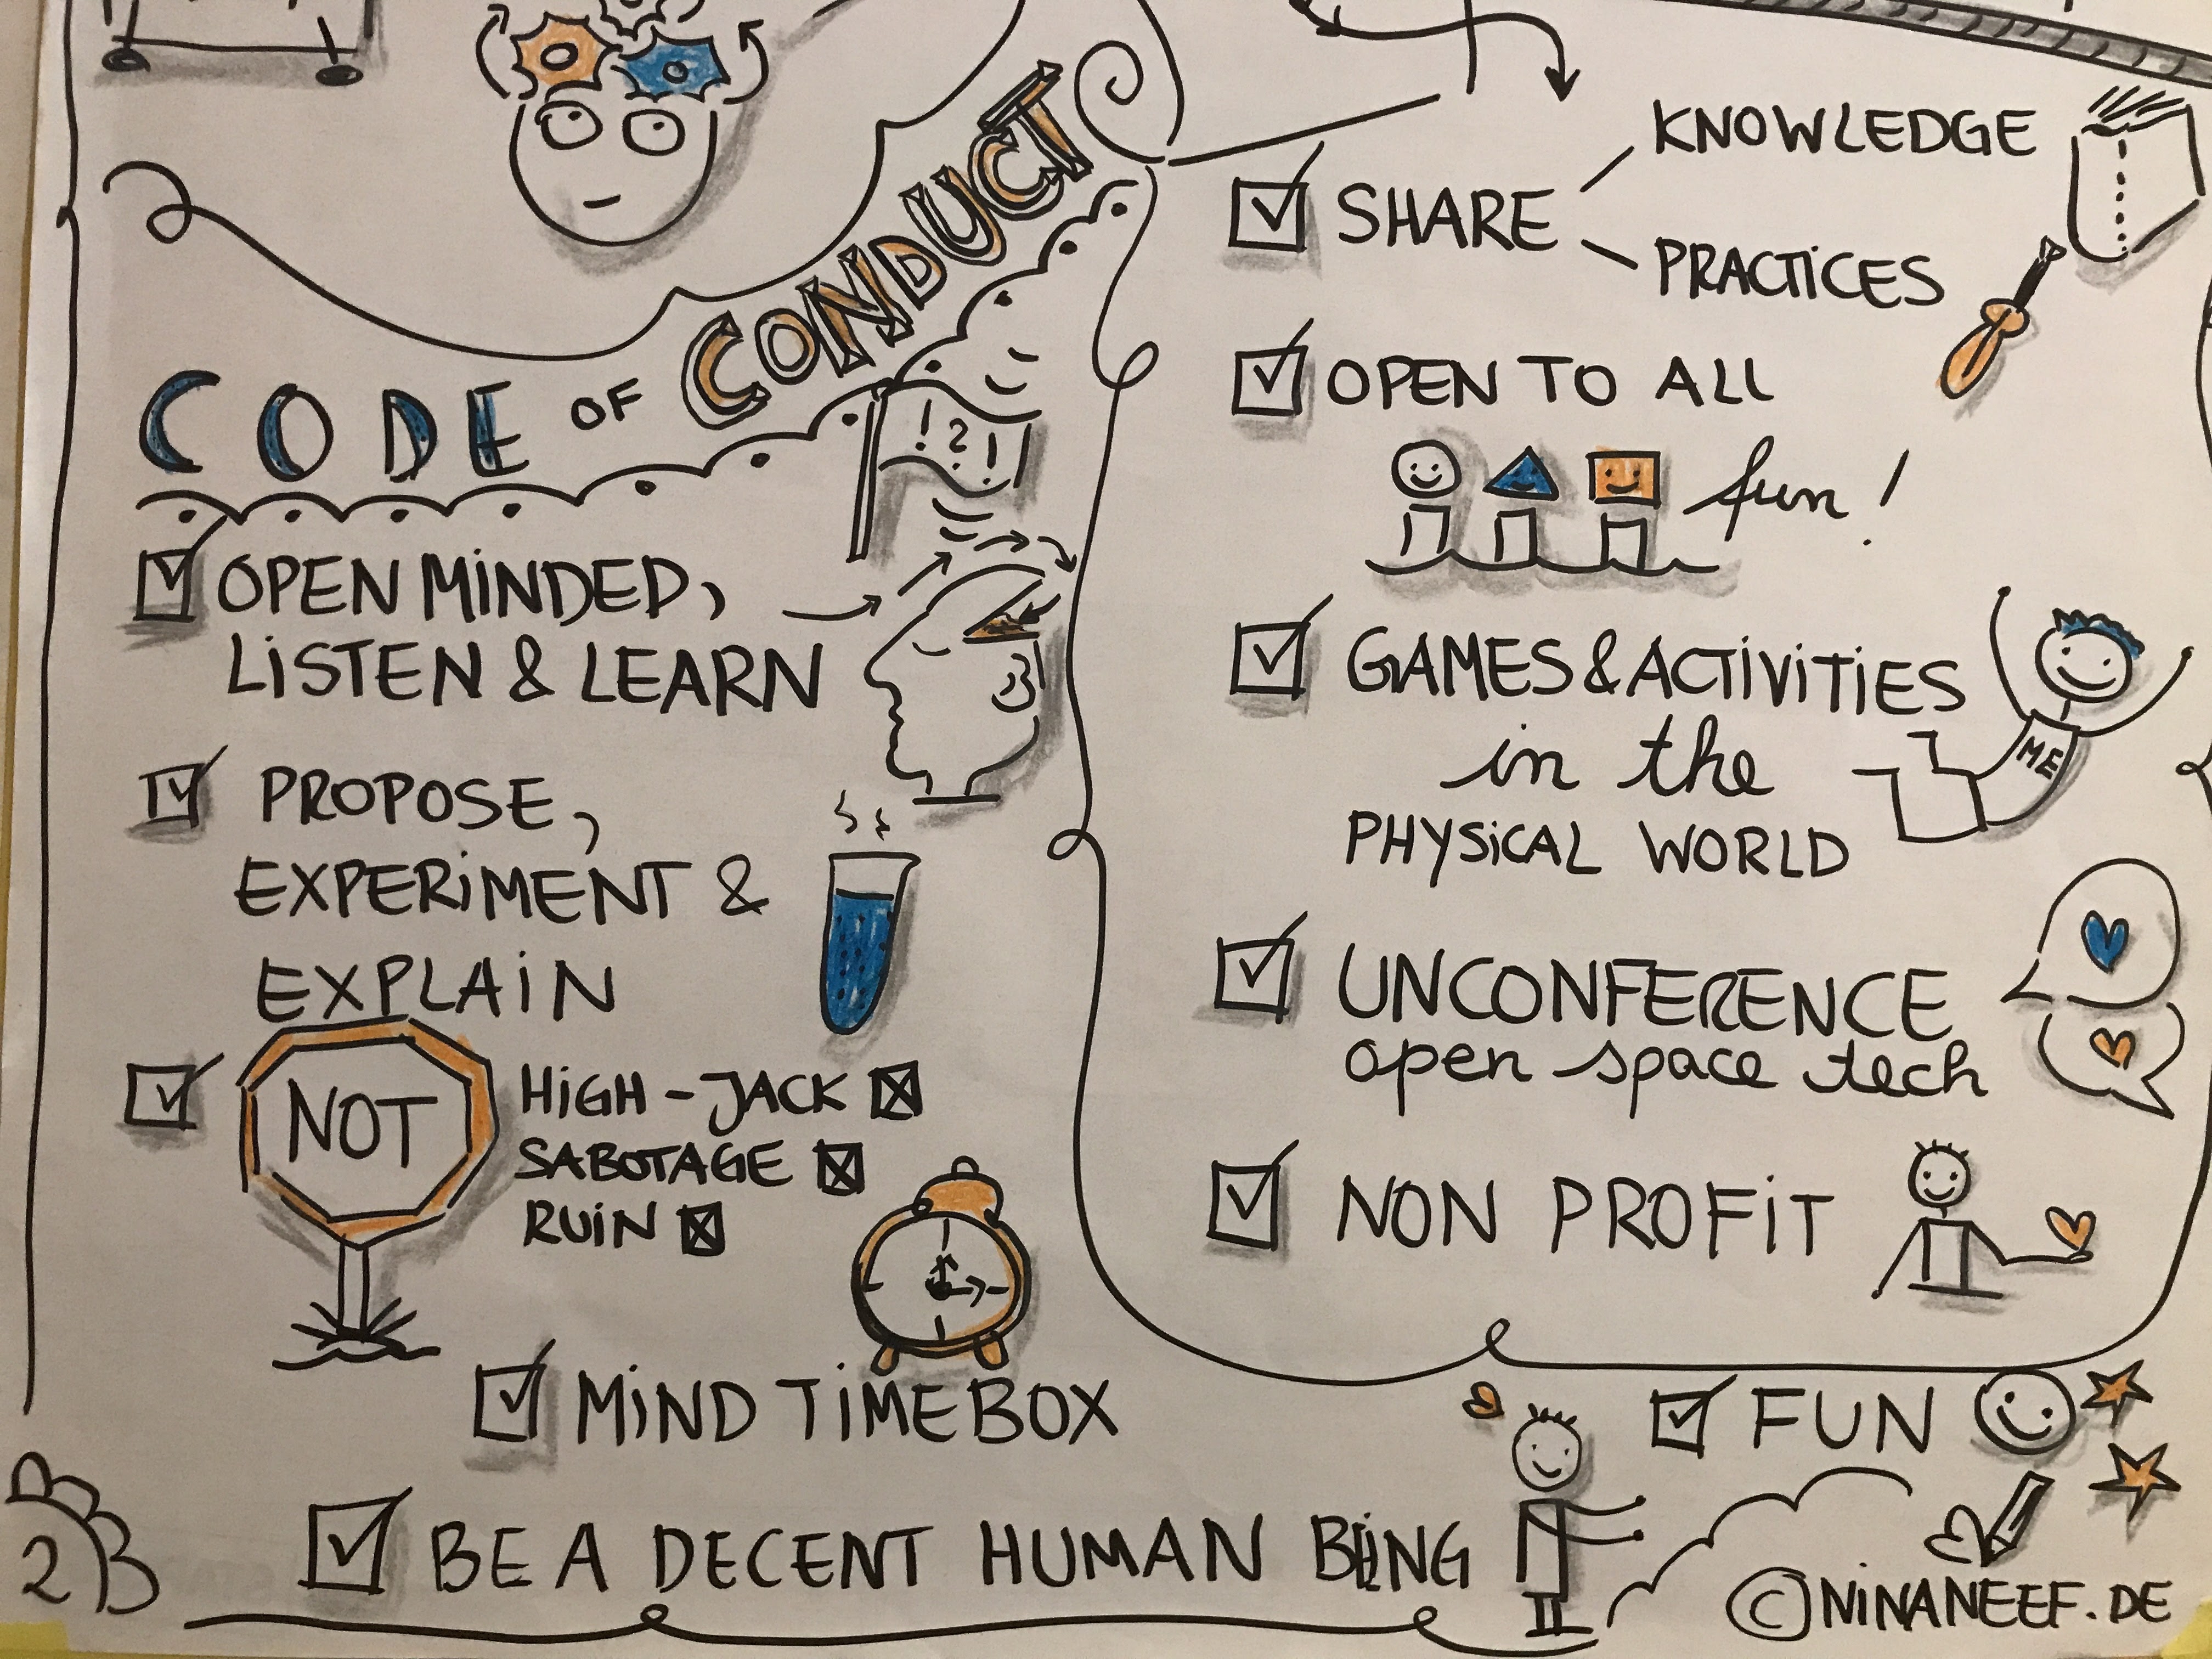 CODE OF CONDUCT
! ? !
OPEN MINDED,
LISTEN & LEARN
PROPOSE,
EXPERIMENT &
EXPLAIN
NOT
HIGH-JACK
SABOTAGE
RUIN
MIND TIMEBOX
BE A DECENT HUMAN BEING
2
SHARE
KNOWLEDGE
PRACTICES
OPEN TO ALL
fun!
GAMES & ACTIVITIES
in the
PHYSICAL WORLD
ME
UNCONFERENCE
open space tech
NON PROFIT
FUN
© NINANEEF.DE